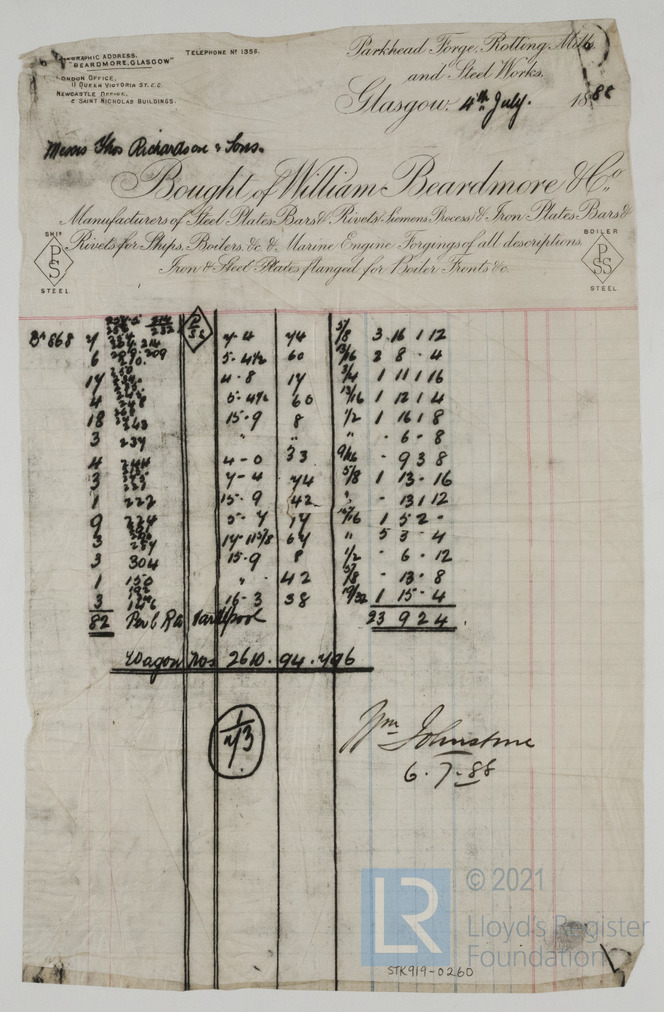 TELEGRAPHIC ADDRESS,
"BEARDMORE, GLASGOW"
TELEPHONE Nº 1356.
LONDON OFFICE,
11 QUEEN VICTORIA ST. E.C.
NEWCASTLE OFFICE,
2 SAINT NICHOLAS BUILDINGS.
Parkhead Forge, Rolling Mills
and Steel Works.
Glasgow, 4th July. 1888
Messrs Thos Richardson & Sons.
Bought of William Beardmore & Co.
Manufacturers of Steel Plates Bars & Rivets (Siemens Process) & Iron Plates Bars &
Rivets for Ships, Boilers, &c. & Marine Engine Forgings of all descriptions.
Iron & Steel Plates flanged for Boiler Fronts &c.
SHIP
PS
STEEL
BOILER
PSS
STEEL
868 7 7-4 74 5/8 3 16 1 12
6 5-4½ 60 13/16 2 8 - 4
17 4-8 17 3/4 1 11 1 16
4 248 5-4½ 60 13/16 1 12 1 4
18 243 15-9 8 1/2 1 16 1 8
3 237 " " " - 6 - 8
4 244 4-0 33 9/16 - 9 3 8
3 7-4 74 5/8 1 13 - 16
1 222 15-9 42 " - 13 1 12
9 224 5-7 17 1 5 2 -
3 257 64 " 5 3 - 4
3 304 15-9 8 1/2 - 6 - 12
1 150 " 42 5/8 - 13 - 8
3 16-3 38 19/32 1 15 - 4
82 Hartlpool 23 9 2 4
Wagon Nos 2610. 94. 496
1/73
Wm Johnstone
6.7.88
LR
© 2021
Lloyd's Register
Foundation
STK919-0260